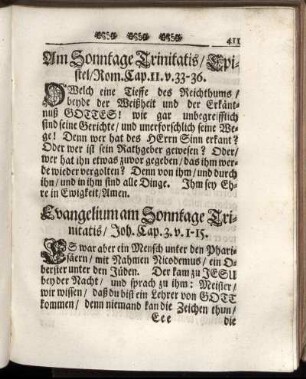 411
Am Sonntage Trinitatis/ Epi-
stel/ Rom. Cap. 11. v. 33-36.
O Welch eine Tieffe des Reichthums/
beyde der Weißheit und der Erkänt-
nuß GOTTES! wie gar unbegreifflich
sind seine Gerichte/ und unerforschlich seine We-
ge! Denn wer hat des HErrn Sinn erkant?
Oder wer ist sein Rathgeber gewesen? Oder/
wer hat ihn etwas zuvor gegeben/ das ihm wer-
de wieder vergolten? Denn von ihm/ und durch
ihn/ und in ihm sind alle Dinge. Ihm sey Eh-
re in Ewigkeit/ Amen.
Evangelium am Sonntage Tri-
nitatis/ Joh. Cap. 3. v. 1-15.
ES war aber ein Mensch unter den Phari-
säern/ mit Nahmen Nicodemus/ ein O-
berster unter den Jüden. Der kam zu JESU
bey der Nacht/ und sprach zu ihm: Meister/
wir wissen/ daß du bist ein Lehrer von GOTT
kommen/ denn niemand kan die Zeichen thun/
Eee die